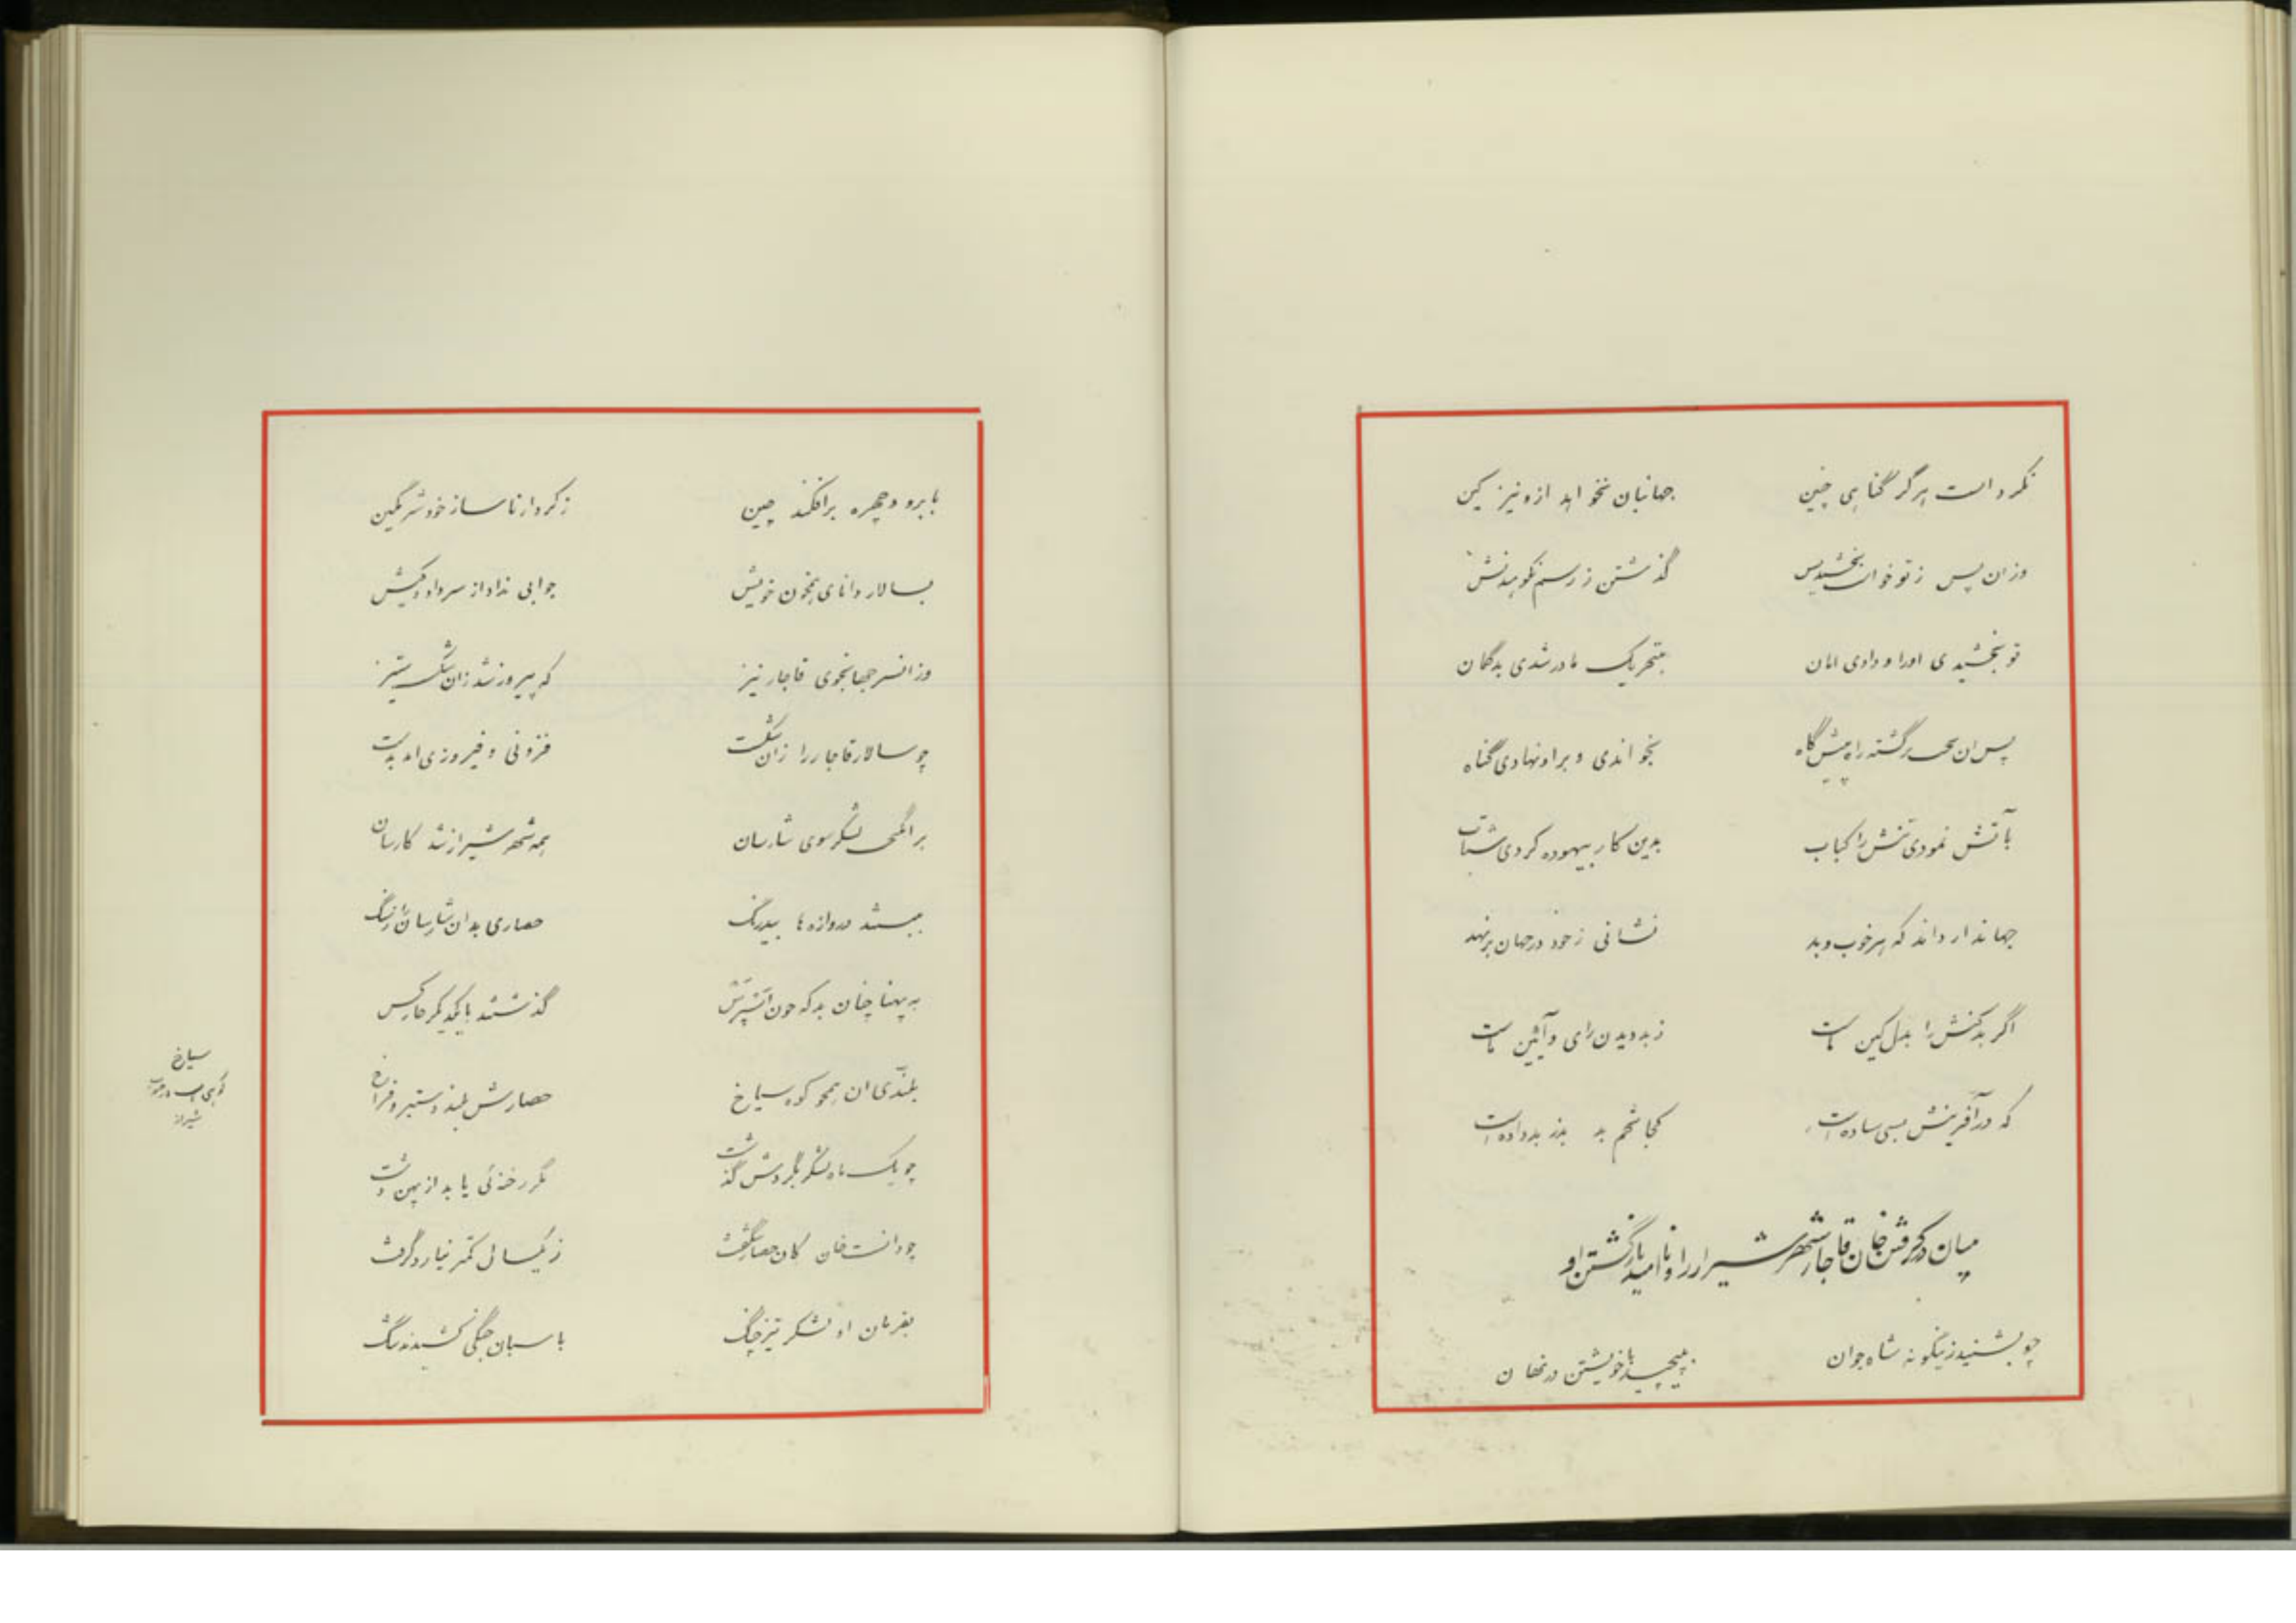 نکرد است هرگز گناهی چنین جهانیان نخواهد ازو نیز کین
وزان پس ز تو خواست بخشیدنش گذشتن ز رسم نکوهیدنش
تو بخشیدی اورا و دادی امان بتحریک مادر شدی بدگمان
پس ان بخت برگشته را پیشگاه بخواندی و براو نهادی گناه
بآتش نمودی تنش را کباب بدین کار بیهوده کردی شتاب
جهاندار داند که هر خوب و بد نشانی ز خود در جهان برنهد
اگر بدکنش را بدل کین ماست ز بد دیدن رای و آئین ماست
که در آفرینش بسی ساده است کجا تخم بد بذر بد داده است
میان در گرفتن خان قاجار شهر شیراز را و ناامید بازگشتن او
چو بشنید زینگونه شاه جوان بپیچید با خویشتن در نهان
بابرو و چهره برافکند چین ز کردار ناساز خود شرمگین
بسالار دانای همخون خویش جوابی نداد از سر داد و کیش
وز انسر جهانجوی قاجار نیز که پیروز شد زان شکست ستیز
چو سالار قاجار را زان شکست فزونی و فیروزی امد بدست
لشکر سوی شارسان همه شهر شیراز شد کارسان
ببستند دروازه‌ها بیدرنگ حصاری بدان شارسان را ز سنگ
به پهنا چنان بد که چون گذشتند با یکدیگر
بلندی ان همچو کوه سیاخ حصارش بلند و ستبر و فراخ
چو یک ماه لشکر بگردش گذشت مگر رخنه‌ئی یابد از پهن دشت
چو دانست خان کان حصار شگفت ز یکسال کمتر نیارد گرفت
بفرمان او لشکر تیز چنگ باسبان جنگی کشیدند تنگ
سیاخ
کوهی است در جنوب
شیراز